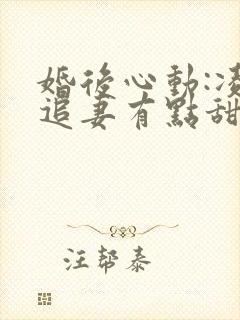 婚後心動:凌
追妻有點甜
汪幫泰